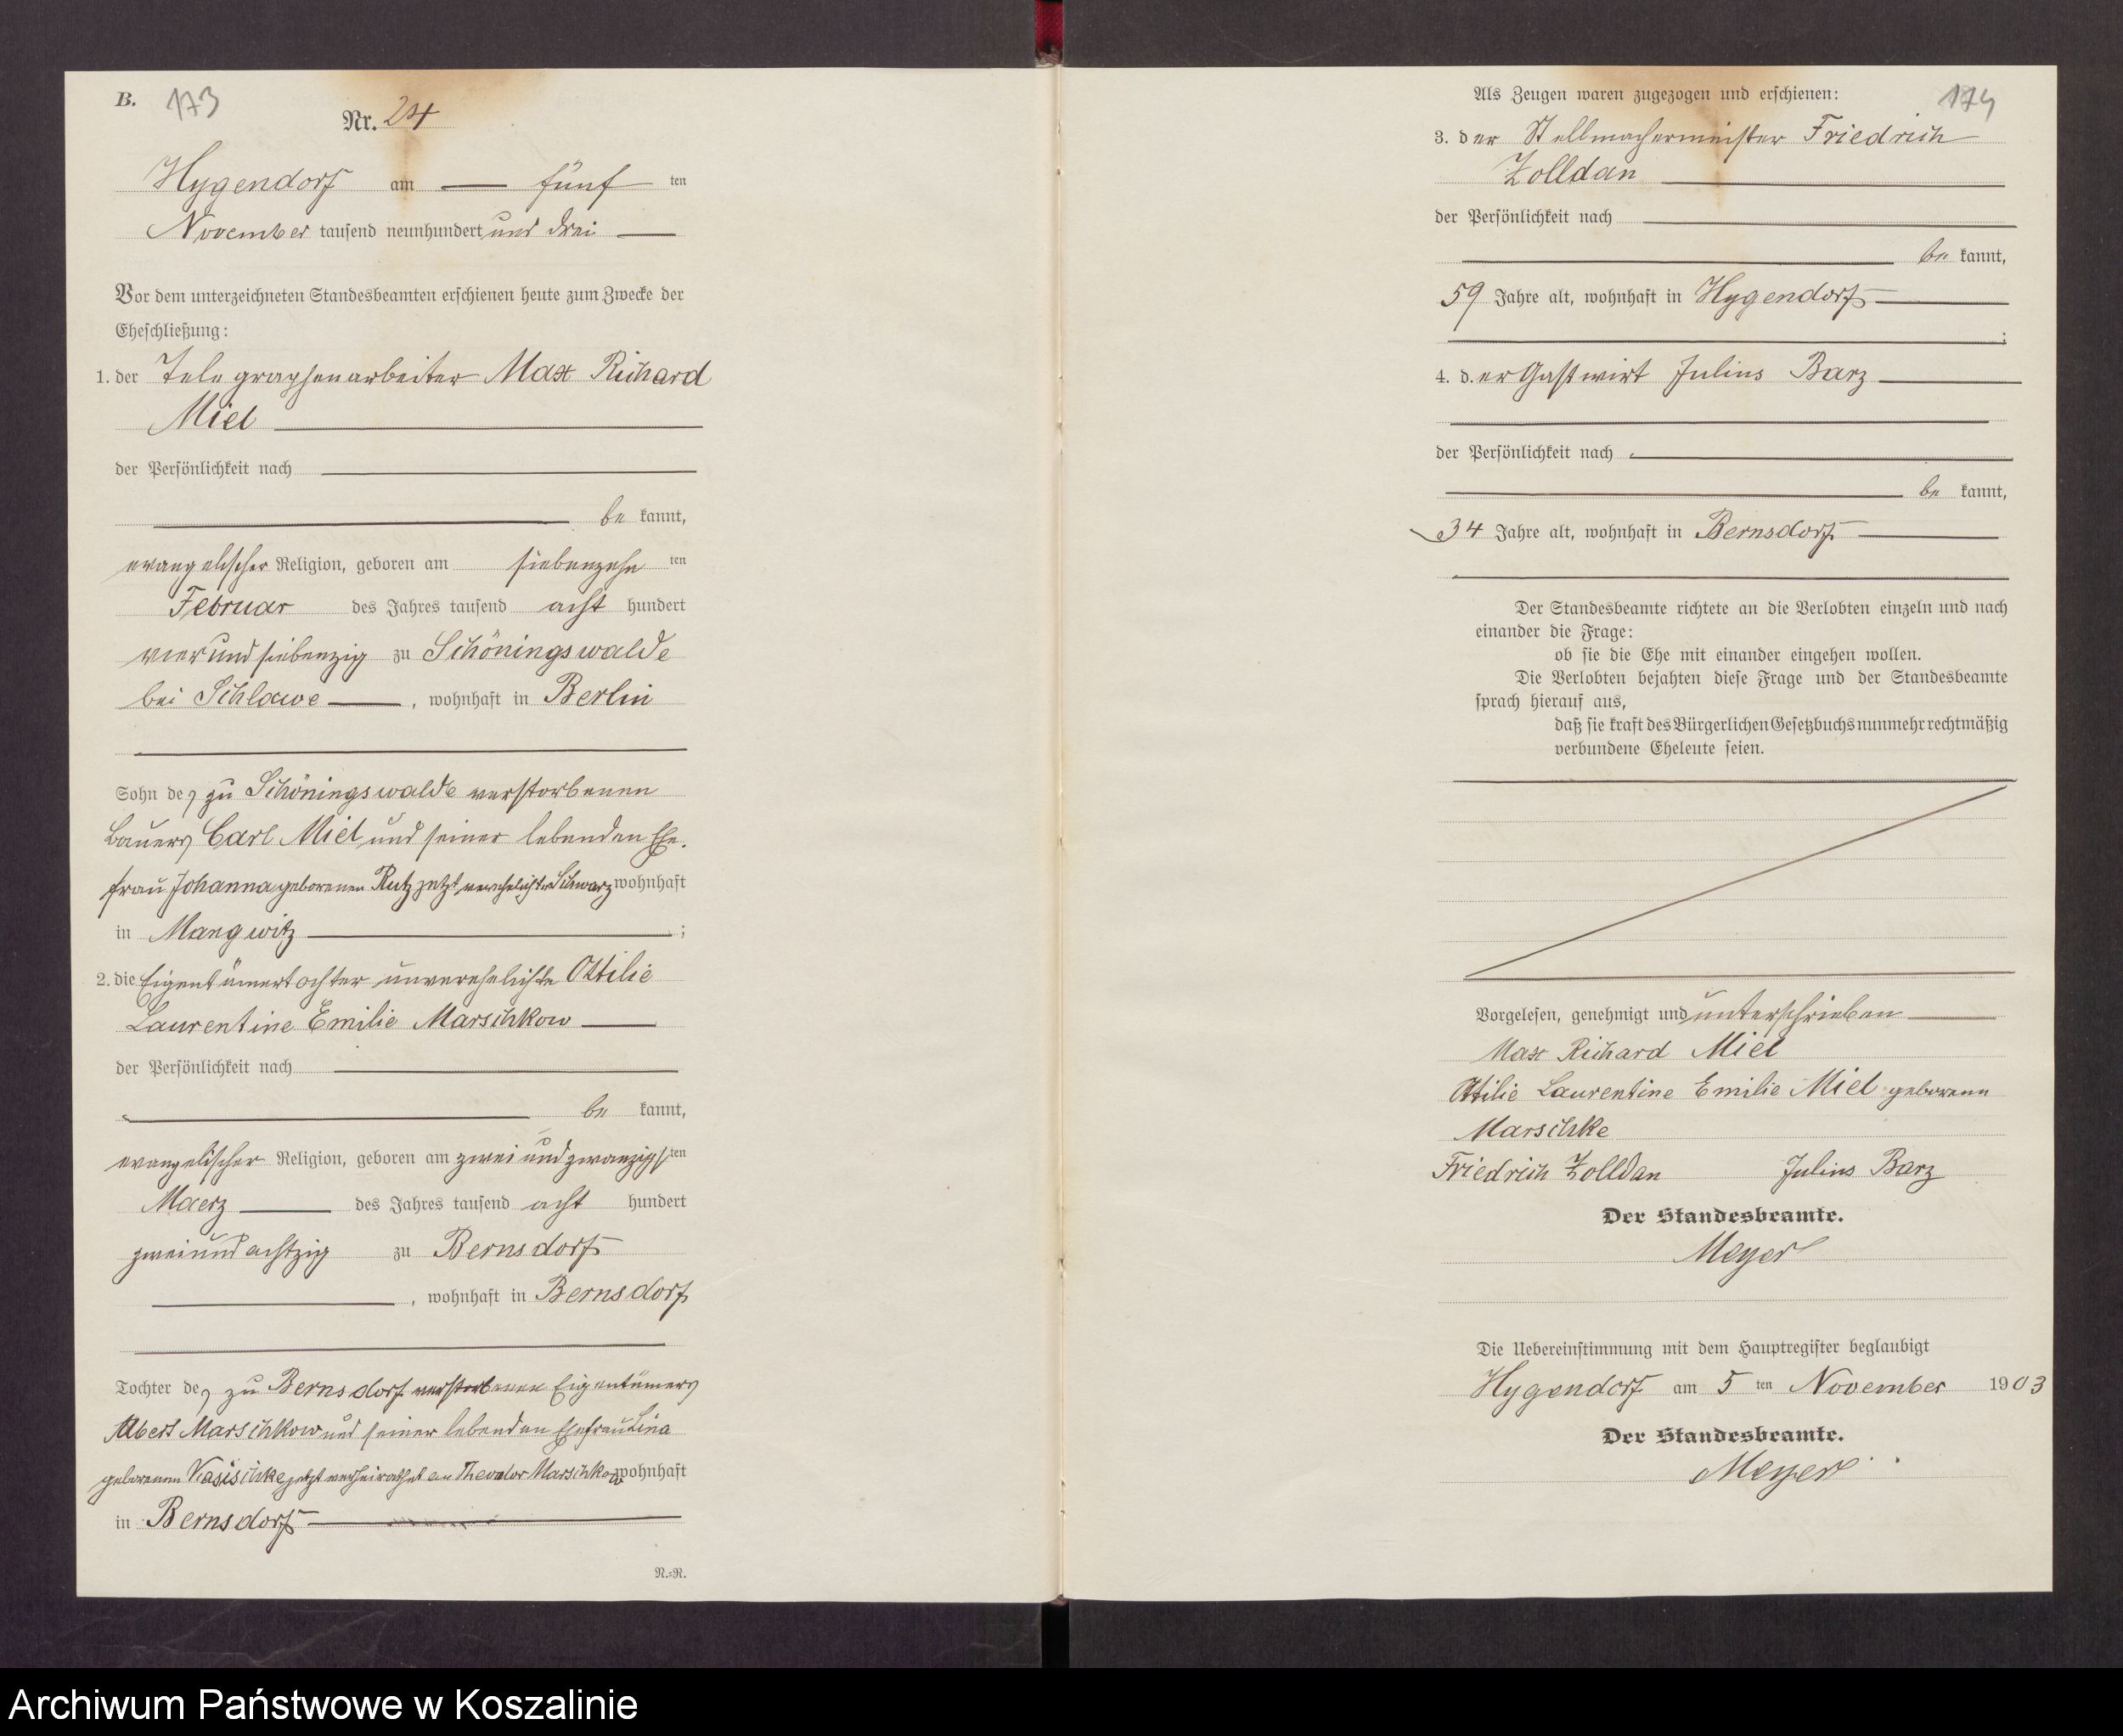 B. 173
Nr. 24
Hygendorf am fünf ten
November tausend neunhundert und drei
Vor dem unterzeichneten Standesbeamten erschienen heute zum Zwecke der
Eheschließung:
1. der Telegraphenarbeiter Max Richard
Miel
der Persönlichkeit nach
be kannt,
evangelischer Religion, geboren am siebenzehn ten
Februar des Jahres tausend acht hundert
vierundsiebenzig zu Schöningswalde
bei Schlawe, wohnhaft in Berlin
Sohn des zu Schöningswalde verstorbenen
Bauers Carl Miel und seiner lebenden Ehe-
frau Johanna geborenen Rutz jetzt verehelichte Schwarz wohnhaft
in Mangwitz;
2. die Eigentümertochter unverehelichte Ottilie
Laurentine Emilie Marschkow
der Persönlichkeit nach
be kannt,
evangelischer Religion, geboren am zwei und zwanzigsten
Maerz des Jahres tausend acht hundert
zweiundachtzig zu Bernsdorf
, wohnhaft in Bernsdorf
Tochter des zu Bernsdorf verstorbenen Eigentümers
Albert Marschkow und seiner lebenden Ehefrau Lina
geborenen jetzt verheirathet an Theodor Marschkow wohnhaft
in Bernsdorf
N.=N.
Als Zeugen waren zugezogen und erschienen: 174
3. der Stellmachermeister Friedrich
Zolldan
der Persönlichkeit nach
be kannt,
59 Jahre alt, wohnhaft in Hygendorf
;
4. d. er Gastwirt Julius Barz
der Persönlichkeit nach
be kannt,
34 Jahre alt, wohnhaft in Bernsdorf
Der Standesbeamte richtete an die Verlobten einzeln und nach
einander die Frage:
ob sie die Ehe mit einander eingehen wollen.
Die Verlobten bejahten diese Frage und der Standesbeamte
sprach hierauf aus,
daß sie kraft des Bürgerlichen Gesetzbuchs nunmehr rechtmäßig
verbundene Eheleute seien.
Vorgelesen, genehmigt und unterschrieben
Max Richard Miel
Ottilie Laurentine Emilie Miel geborene
Marschke
Friedrich Zolldan Julius Barz
Der Standesbeamte.
Meyer
Die Uebereinstimmung mit dem Hauptregister beglaubigt
Hygendorf am 5 ten November 1903
Der Standesbeamte.
Meyer
Archiwum Państwowe w Koszalinie